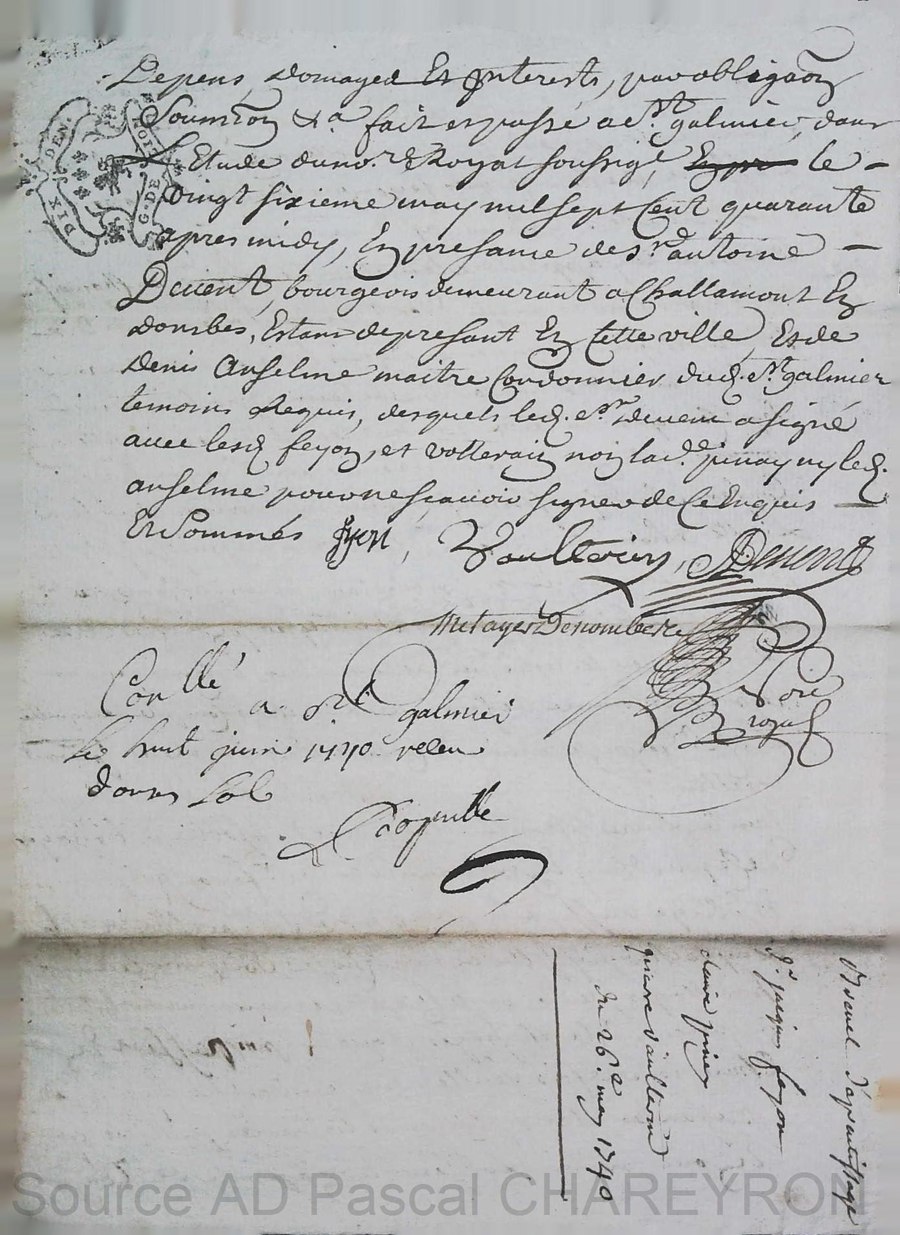 Depens, Domages Et Interests, par obligaōn
Soumiōn &a fait et passé a St galmier, dans
L'Etude du nore Royal soussigé, le –
Vingt sixieme may mil sept Cent quarante
apres midy, En presance de sr antoine –
Devent, bourgeois demeurant a Challamont En
dombes, Estant de present En Cette ville, Et de
Denis Anselme maitre Cordonnier dud. St galmier
temoins Requis, desquels led. sr devent a signé
avec lesd feyon, et volterain non lad. pinay ny led.
anselme pour ne scavoir signer de Ce Enquis –
Et Sommés feyon, Vaulterin, Devent
Metayer Denombere
Nore royal
Conllé a St galmier
le huit juin 1740 receu
douze sols
DIX DEN.
G. DE
Brevet d'aprantissage
feyon
claire piney
pierre vaulterin
du 26e may 1740
Source AD Pascal CHAREYRON